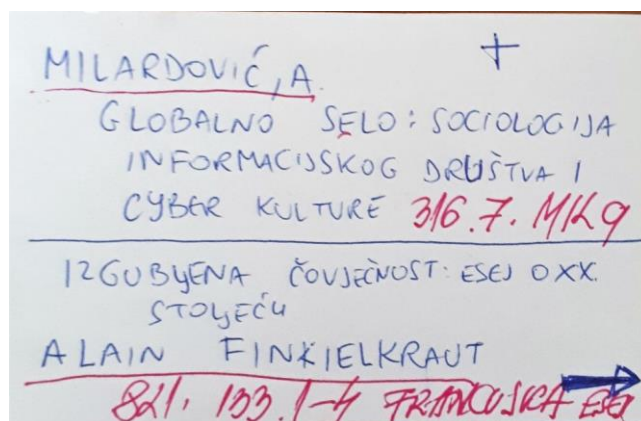 MILARDOVIĆ, A. +
GLOBALNO SELO: SOCIOLOGIJA
INFORMACIJSKOG DRUŠTVA I
CYBER KULTURE 316.7. MIL 9
IZGUBLJENA ČOVJEČNOST: ESEJ O XX.
STOLJEĆU
ALAIN FINKIELKRAUT
821.133.1-4 FRANCUSKA ESEJ